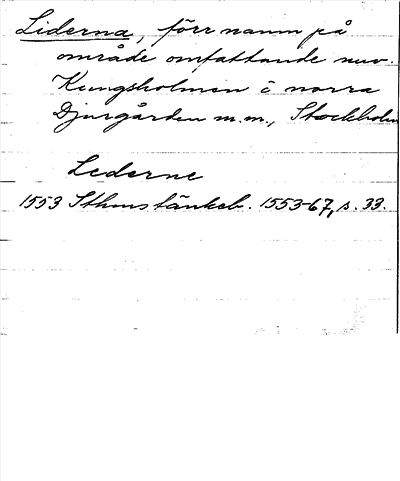 Liderna, förr namn på
område omfattande nuv.
Kungsholmen i norra
Djurgården m.m., Stockholm
Lederne
1553 Sthms tänkeb. 1553-67, s. 33.